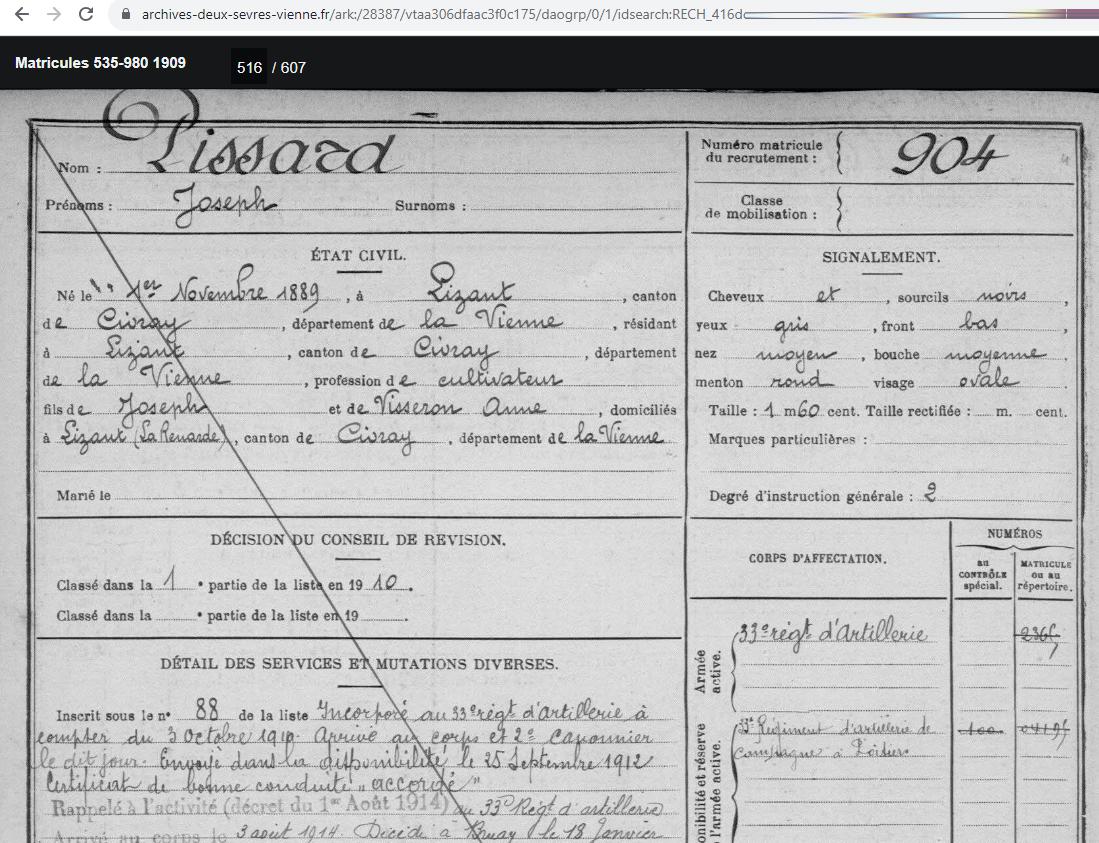 archives-deux-sevres-vienne.fr/ark:/28387/vtaa306dfaac3f0c175/daogrp/0/1/idsearch:RECH_416d
Matricules 535-980 1909 516 / 607
Nom : Pissard
Prénoms : Joseph Surnoms :
Numéro matricule du recrutement : 904
Classe de mobilisation :
ÉTAT CIVIL.
Né le 1er Novembre 1889, à Lizant, canton
de Civray, département de la Vienne, résidant
à Lizant, canton de Civray, département
de la Vienne, profession de cultivateur
fils de Joseph et de Visseron Anne, domiciliés
à Lizant (La Renarde), canton de Civray, département de la Vienne
Marié le
SIGNALEMENT.
Cheveux et, sourcils noirs,
yeux gris, front bas,
nez moyen, bouche moyenne.
menton rond visage ovale.
Taille : 1 m 60 cent. Taille rectifiée : m. cent.
Marques particulières :
Degré d'instruction générale : 2
DÉCISION DU CONSEIL DE REVISION.
Classé dans la 1e partie de la liste en 1910.
Classé dans la e partie de la liste en 19 .
DÉTAIL DES SERVICES ET MUTATIONS DIVERSES.
Inscrit sous le n° 88 de la liste Incorporé au 33e régt d'Artillerie à
compter du 3 Octobre 1910. Arrivé au corps et 2e canonnier
le dit jour. Envoyé dans la disponibilité le 25 Septembre 1912
Certificat de bonne conduite "accordé"
Rappelé à l'activité (décret du 1er Août 1914) au 33e Régt d'artillerie
Arrivé au corps le 3 août 1914. Décédé à Bruay le 18 Janvier
CORPS D'AFFECTATION.
NUMÉROS
au CONTRÔLE spécial.
MATRICULE ou au répertoire.
Armée active.
33e régt d'Artillerie
ponibilité et réserve
l'armée active.
33e Régiment d'artillerie de
Campagne à Poitiers